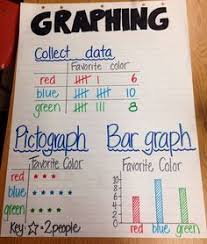 GRAPHING
Collect data
Favorite Color
red 6
blue 10
green 8
Pictograph
Favorite Color
red
blue
green
Key: ☆=2people
Bar graph
Favorite Color
10
8
6
4
2
0